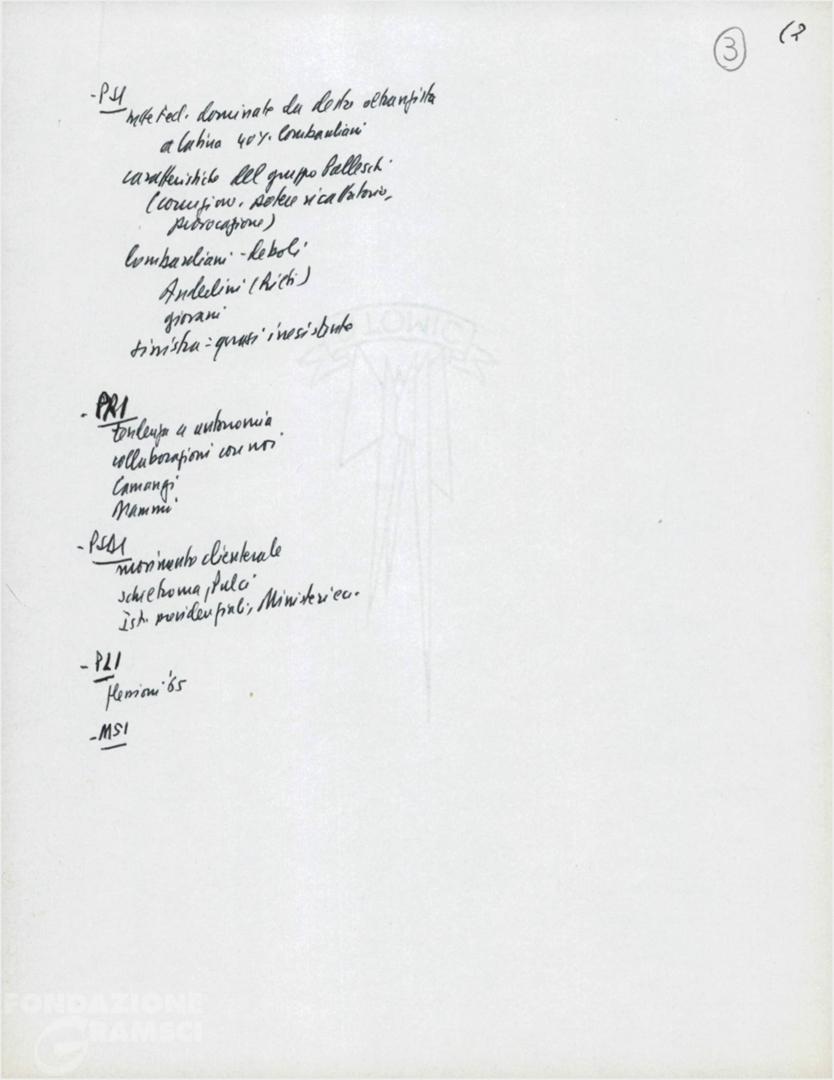 3
- PSI
tutte Fed. dominate da destra oltranzista
a Latina 40% lombardiani
caratteristiche del gruppo Palleschi
(corruzione, potere ricattatorio,
provocazione)
lombardiani - deboli
Anderlini (Rieti)
giovani
sinistra = quasi inesistente
- PRI
tendenza a autonomia
collaborazioni con noi
Camangi
Mammì
- PSDI
movimento clientelare
Schietroma, Pulci
Ist. previdenziali, Ministeri ecc.
- PLI
flessioni '65
- MSI
TOWIC
FONDAZIONE
GRAMSCI